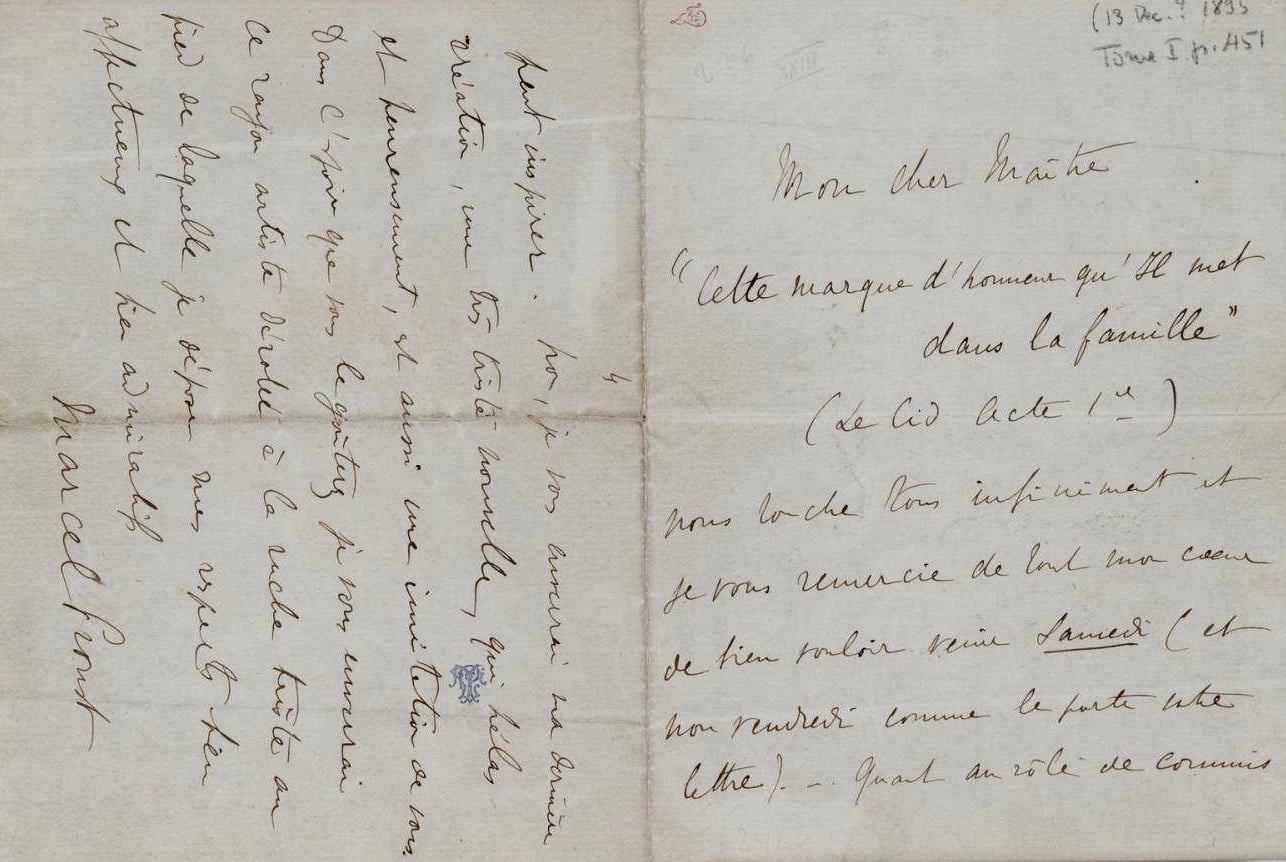 (13 Dec. ? 1895
Tome I p. 451
Mon cher Maître
"Cette marque d'honneur qu'Il met
dans la famille"
(Le Cid Acte 1er)
nous touche tous infiniment et
je vous remercie de tout mon cœur
de bien vouloir venir Samedi (et
non vendredi comme le porte votre
lettre). - . Quant au rôle de commis
4
peut inspirer. je vous enverrai ma dernière
création, une très triste nouvelle, qui hélas
et heureusement, est aussi une imitation de vous.
Dans l'espoir que vous le goûtiez je vous enverrai
ce rayon artiste dérobé à la ruche triste au
pied de laquelle je dépose mes respects bien
affectueux et bien admiratifs
Marcel Proust